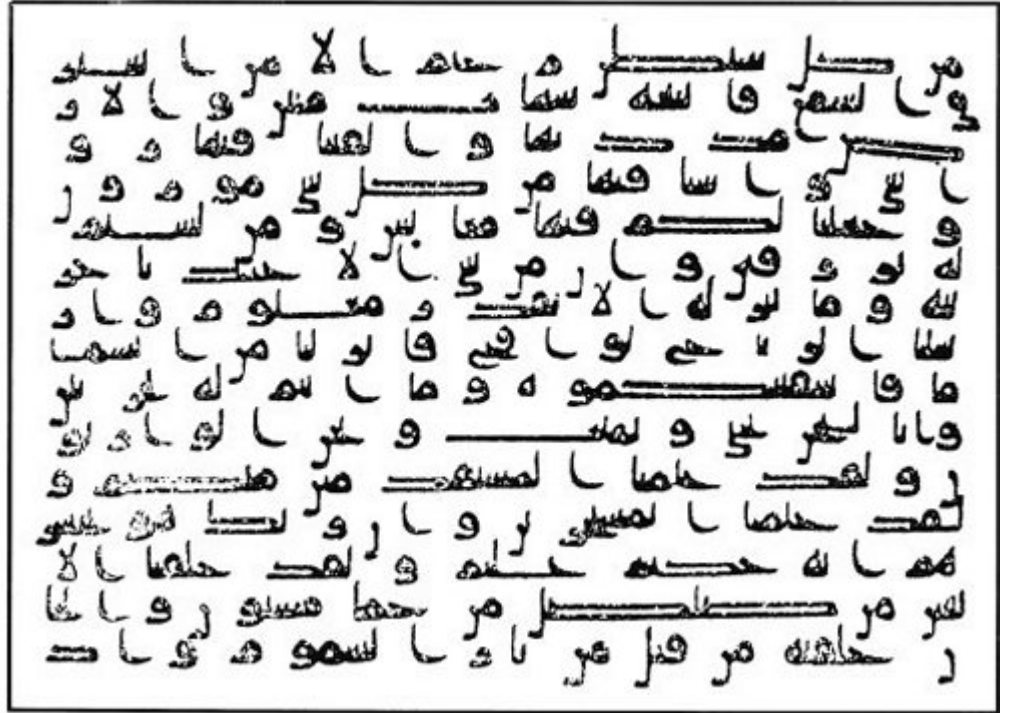 من كل شيطن رجيم الا من استر
ق السمع فاتبعه شهاب مبين والار
ض مددنها والقينا فيها رو
اسي وانبتنا فيها من كل شي موزون
وجعلنا لكم فيها معيش ومن لستم
له برزقين وان من شي الا عندنا خز
ئنه وما ننزله الا بقدر معلوم وار
سلنا الريح لوقح فانزلنا من السما
ما فاسقينكموه وما انتم له بخز
نين وانا لنحن نحي ونميت ونحن الورثو
ن ولقد علمنا المستقدمين منكم و
لقد علمنا المستخرين وان ربك هو يحشر
هم انه حكيم عليم ولقد خلقنا الا
نسن من صلصل من حما مسنون والجا
ن خلقنه من قبل من نار السموم واذ